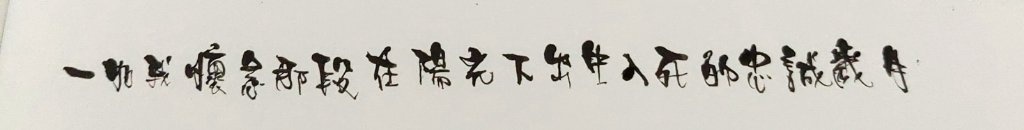 一如我懷念那段在陽光下出生入死的忠誠歲月